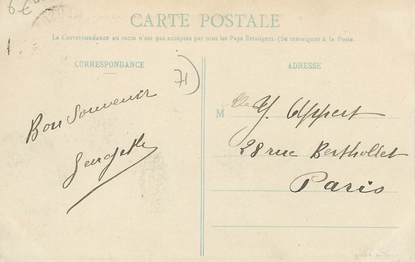 6€
CARTE POSTALE
La Correspondance au recto n'est pas acceptée par tous les Pays Etrangers. (Se renseigner à la Poste.)
CORRESPONDANCE
71)
ADRESSE
Bon Souvenir
M lle Y. Appert
28 rue Berthollet
Paris